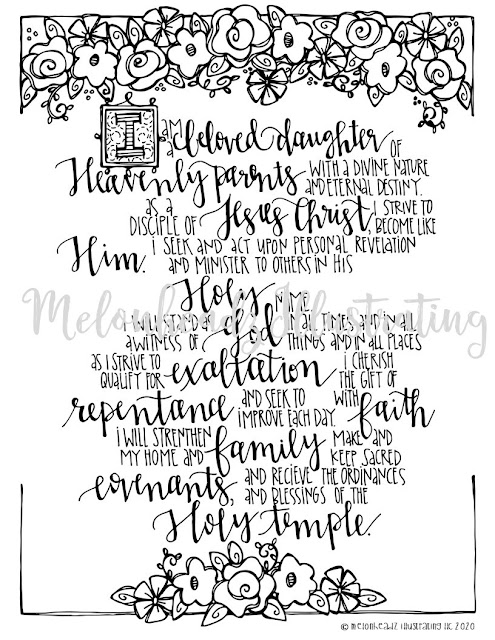 I AM A beloved daughter OF
Heavenly parents WITH A DIVINE NATURE AND ETERNAL DESTINY.
AS A DISCIPLE OF Jesus Christ, I STRIVE TO BECOME LIKE
Him. I SEEK AND ACT UPON PERSONAL REVELATION AND MINISTER TO OTHERS IN HIS
Holy NAME.
I WILL STAND AS A WITNESS OF God AT ALL TIMES AND IN ALL THINGS AND IN ALL PLACES
AS I STRIVE TO QUALIFY FOR exaltation I CHERISH THE GIFT OF
repentance AND SEEK TO IMPROVE EACH DAY. WITH faith
I WILL STRENTHEN MY HOME AND family MAKE AND KEEP SACRED
covenants, AND RECIEVE THE ORDINANCES AND BLESSINGS OF THE
Holy temple.
Melonheadz Illustrating
© melonheadz illustrating llc 2020